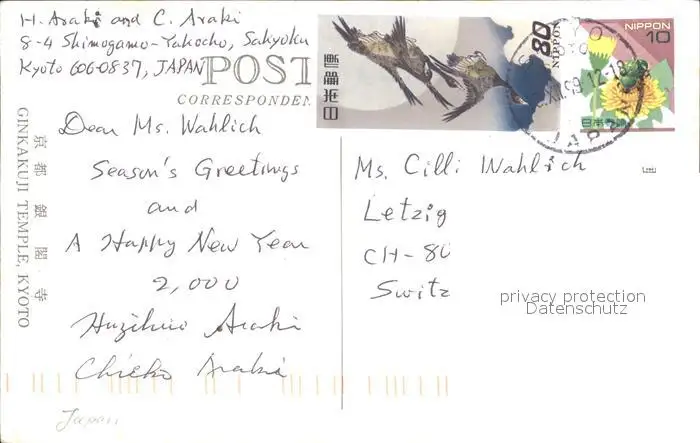 H. Araki and C. Araki
8-4 Shimogamo-Takocho, Sakyoku
Kyoto 606-0837, JAPAN
POST
CORRESPONDEN
Dear Ms. Wahlich
Season's Greetings
and
A Happy New Year
2,000
Araki
Chieko Araki
Japan
京都 銀閣寺
GINKAKUJI TEMPLE, KYOTO
日本郵便
80
NIPPON
NIPPON
10
日本郵便
JAPAN
Ms. Cilli Wahlich
Letzig
CH-80
Switz
privacy protection
Datenschutz